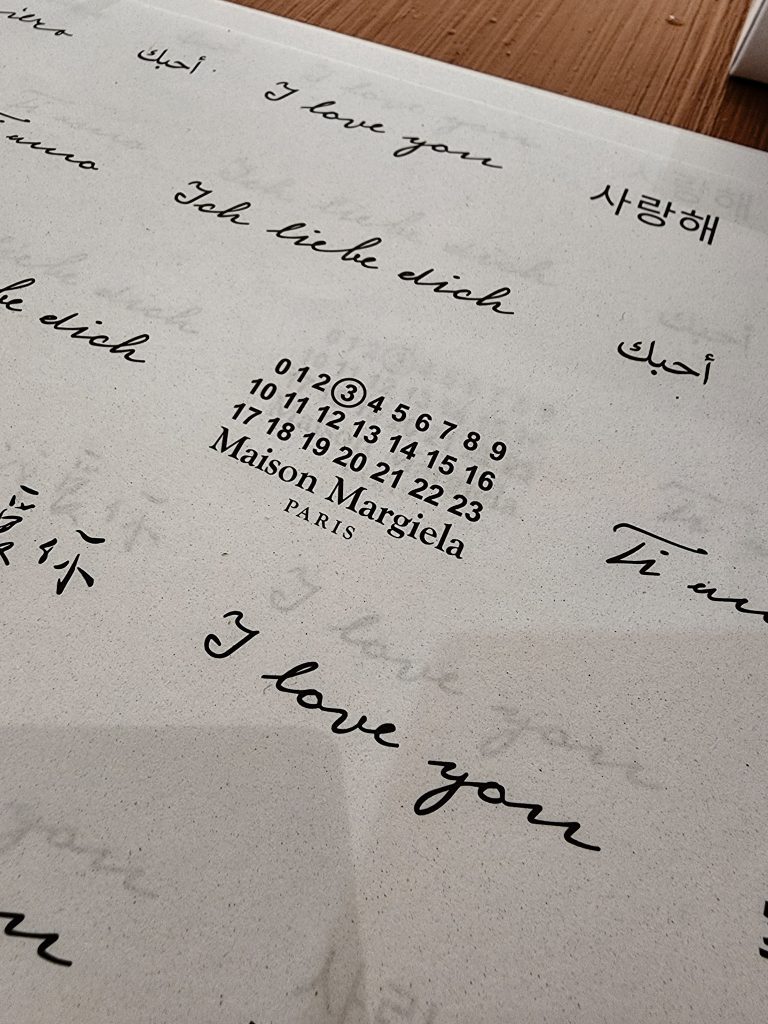 أحبك
I love you
사랑해
Ich liebe dich
dich
أحبك
0 1 2 3 4 5 6 7 8 9
10 11 12 13 14 15 16
17 18 19 20 21 22 23
Maison Margiela
PARIS
Ti
你
I love you